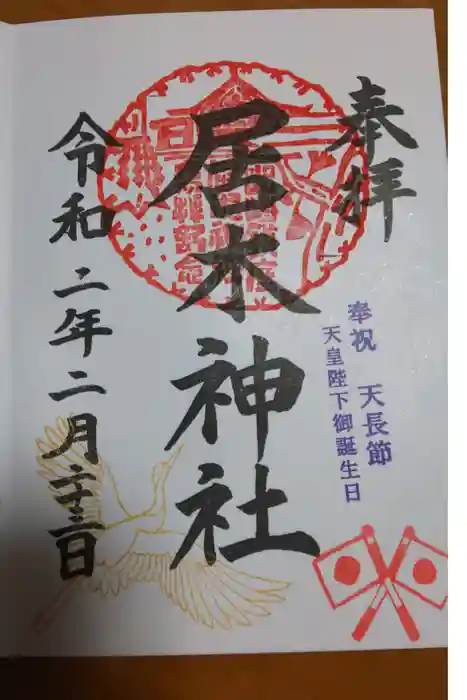 奉拝
奉祝 天長節
天皇陛下御誕生日
居木神社
令和二年二月二十三日